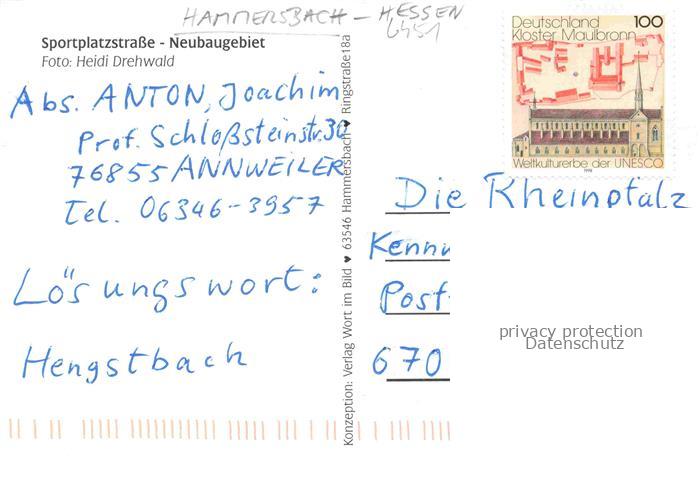 HAMMERSBACH - HESSEN
6451
Sportplatzstraße - Neubaugebiet
Foto: Heidi Drehwald
Abs. ANTON, Joachim
Prof. Schloßsteinstr. 30
76855 ANNWEILER
Tel. 06346-3957
Lösungswort:
Hengstbach
Konzeption: Verlag Wort im Bild ♥ 63546 Hammersbach ♥ Ringstraße18a
Deutschland 100
Kloster Maulbronn
Weltkulturerbe der UNESCO
1998
Die Rheinpfalz
Kennw
Post-
670
privacy protection
Datenschutz